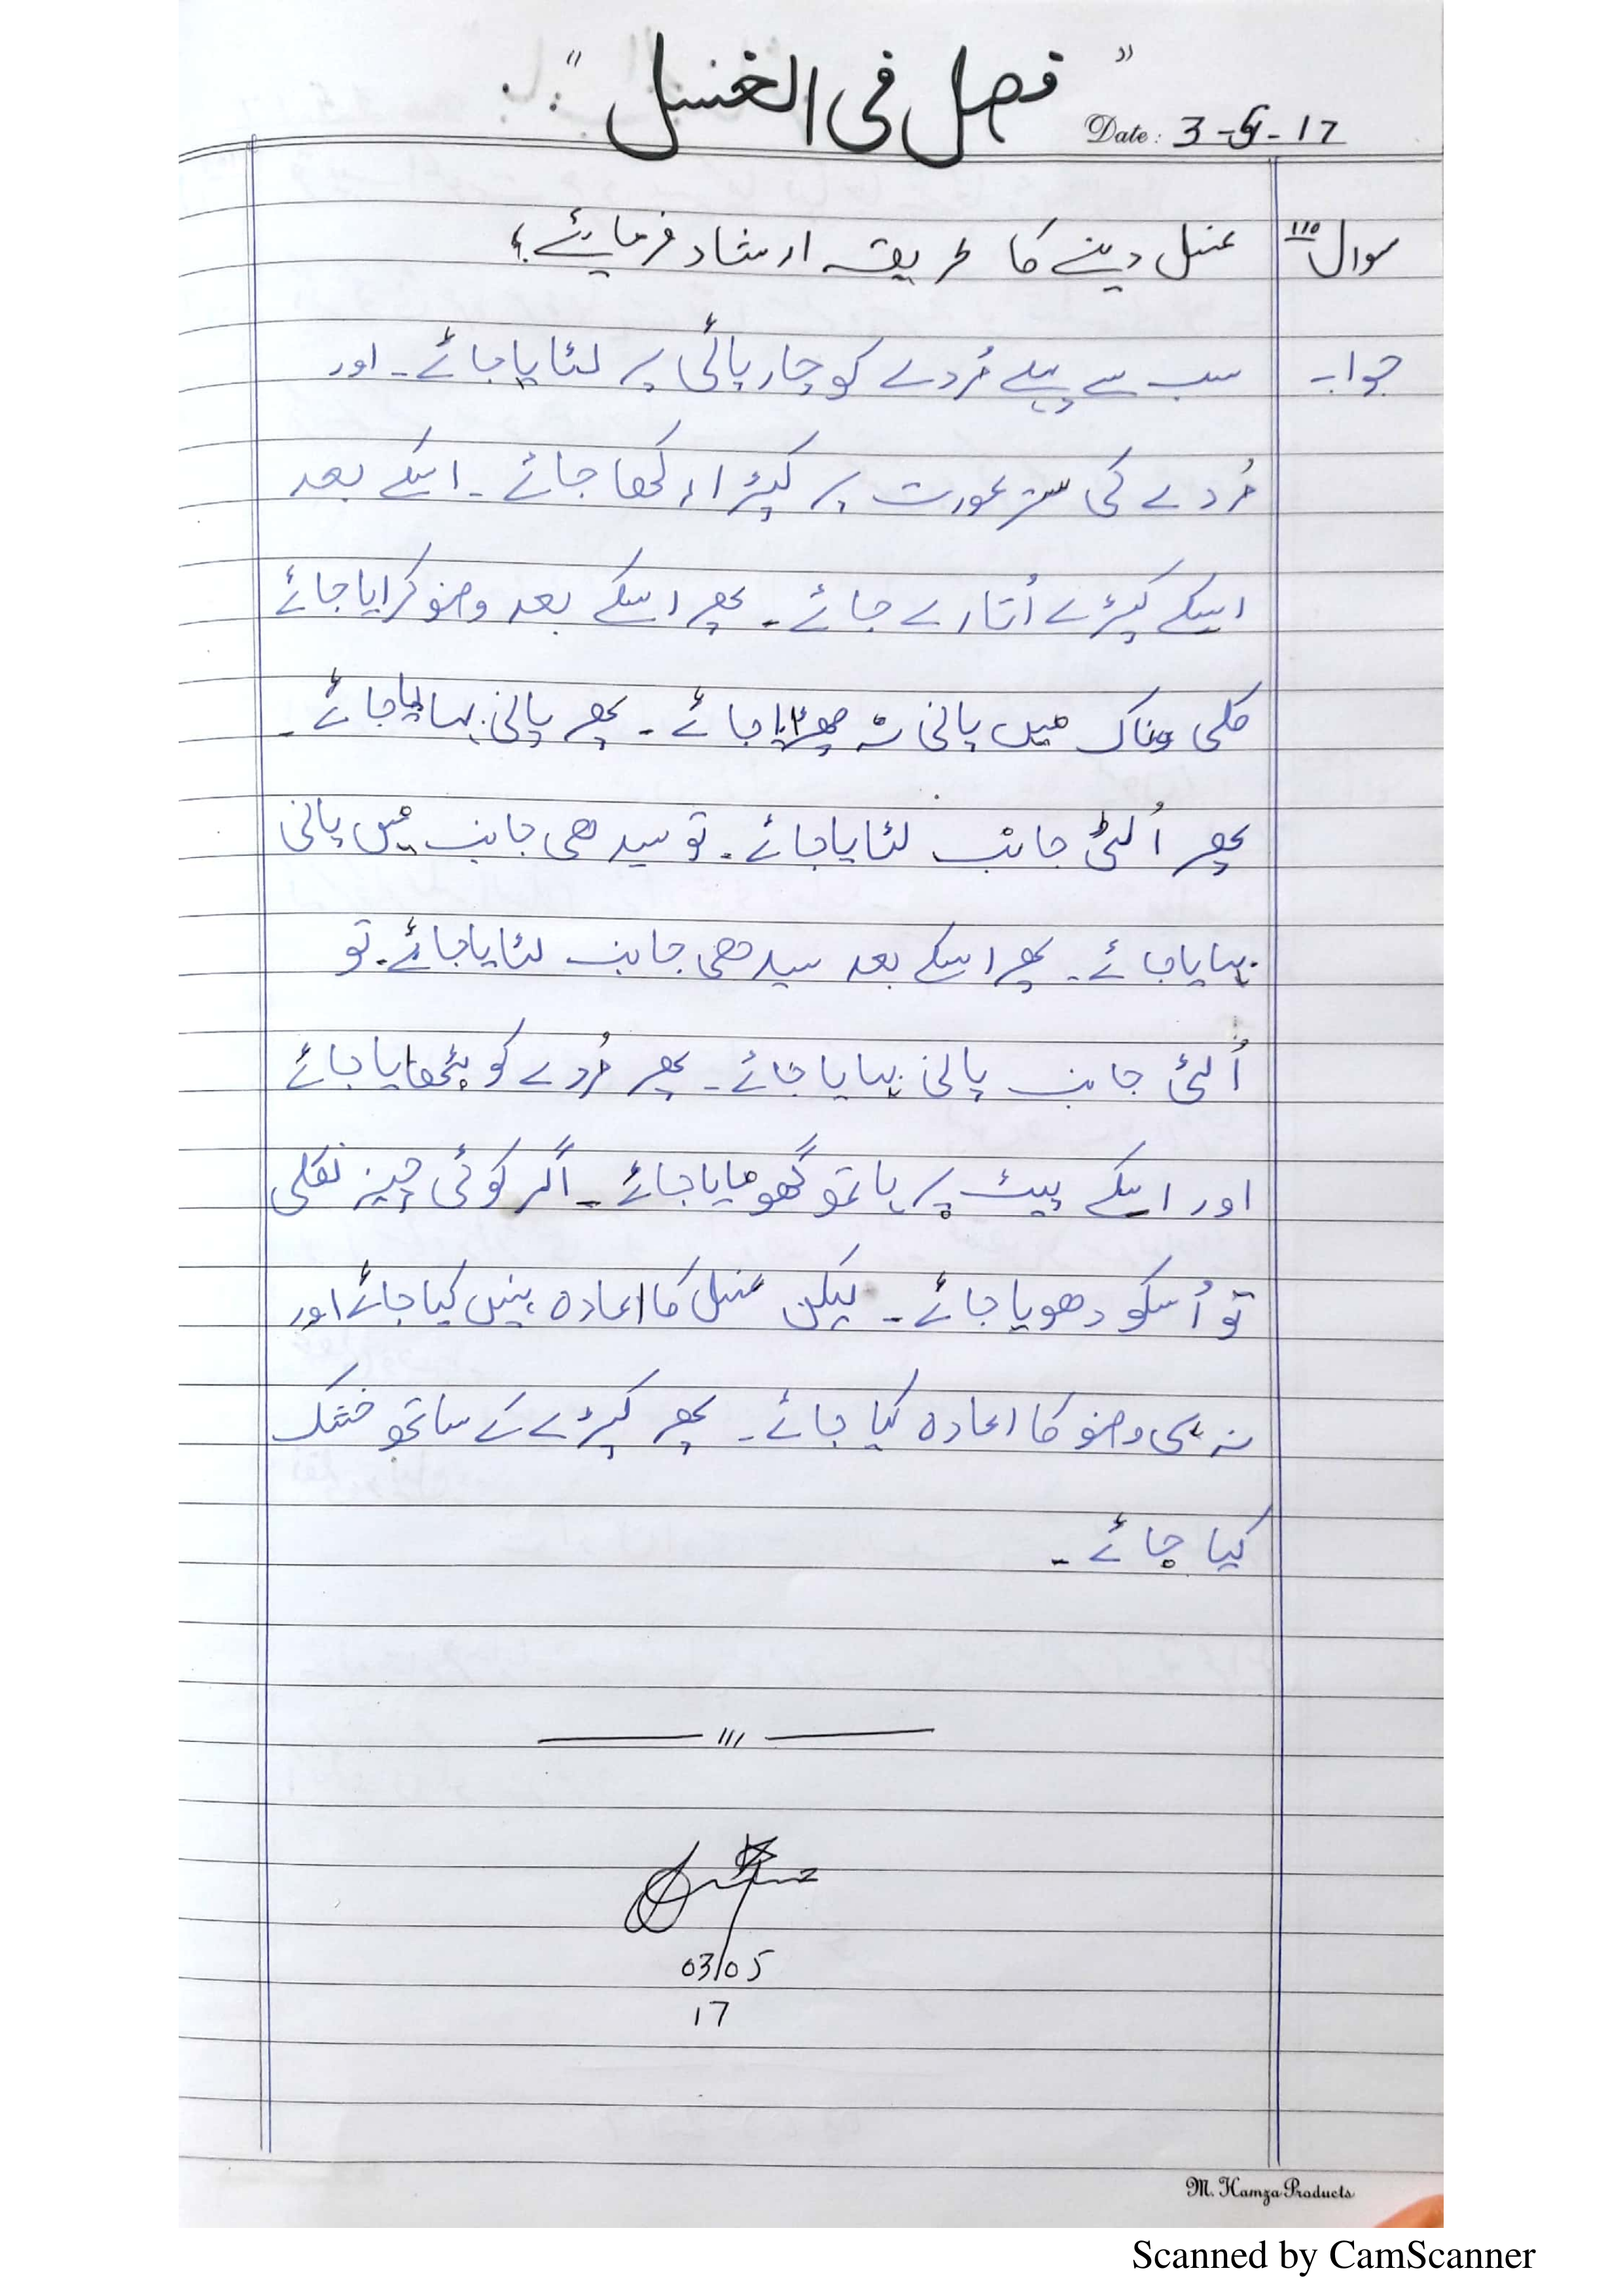 "فصل فی الغسل"
Date: 3-5-17
سوال ۱۱۰ غسل دینے کا طریقہ ارشاد فرمایئے؟
جواب سب سے پہلے مُردے کو چارپائی پر لٹایا جائے۔ اور
مُردے کی ستر عورت پر کپڑا رکھا جائے۔ اسکے بعد
اسکے کپڑے اُتارے جائے۔ پھر اسکے بعد وضو کرایا جائے
کلی وناک میں پانی نہ چھڑایا جائے۔ پھر پانی بہایا جائے۔
پھر اُلٹی جانب لٹایا جائے۔ تو سیدھی جانب میں پانی
بہایا جائے۔ پھر اسکے بعد سیدھی جانب لٹایا جائے۔ تو
اُلٹی جانب پانی بہایا جائے۔ پھر مُردے کو بٹھایا جائے
اور اسکے پیٹ پر ہاتھ گھومایا جائے۔ اگر کوئی چیز نکلی
تو اُسکو دھویا جائے۔ لیکن غسل کا اعادہ نہیں کیا جائے اور
نہ ہی وضو کا اعادہ کیا جائے۔ پھر کپڑے کے ساتھ خشک
کیا جائے۔
03/05
17
M. Hamza Products
Scanned by CamScanner